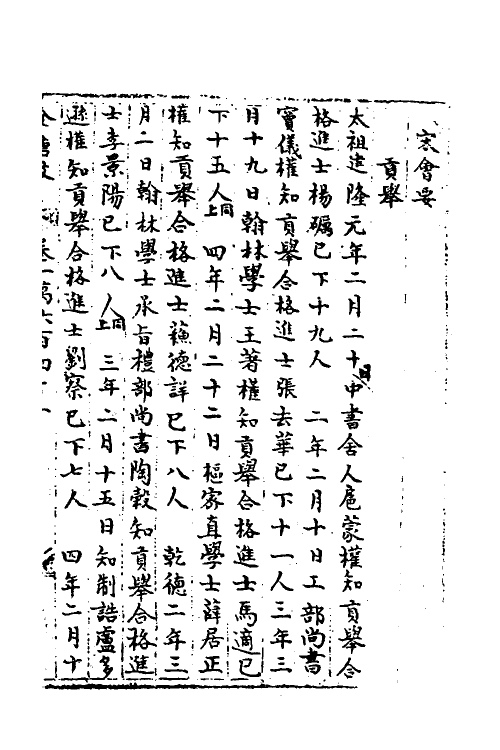 宋會要
貢舉
太祖建隆元年二月二十日中書舍人扈蒙權知貢舉合
格進士楊礪已下十九人 二年二月十日工部尚書
竇儀權知貢舉合格進士張去華已下十一人三年三
月十九日翰林學士王著權知貢舉合格進士馬適已
下十五人上同 四年二月二十二日樞密直學士薛居正
權知貢舉合格進士蘇德詳已下八人 乾德二年三
月二日翰林學士承旨禮部尚書陶穀知貢舉合格進
士李景陽已下八人上同 三年二月十五日知制誥盧多
遜權知貢舉合格進士劉察已下七人 四年二月十
卷一萬六百四十一